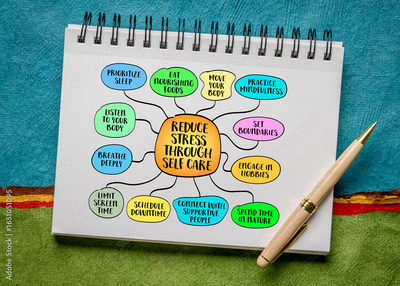 PRIORITIZE
SLEEP
EAT
NOURISHING
FOODS
MOVE
YOUR
BODY
PRACTICE
MINDFULNESS
LISTEN
TO YOUR
BODY
SET
BOUNDARIES
REDUCE
STRESS
THROUGH
SELF CARE
BREATHE
DEEPLY
ENGAGE IN
HOBBIES
LIMIT
SCREEN
TIME
SCHEDULE
DOWNTIME
CONNECT WITH
SUPPORTIVE
PEOPLE
SPEND TIME
IN NATURE
Adobe Stock | #1651051095